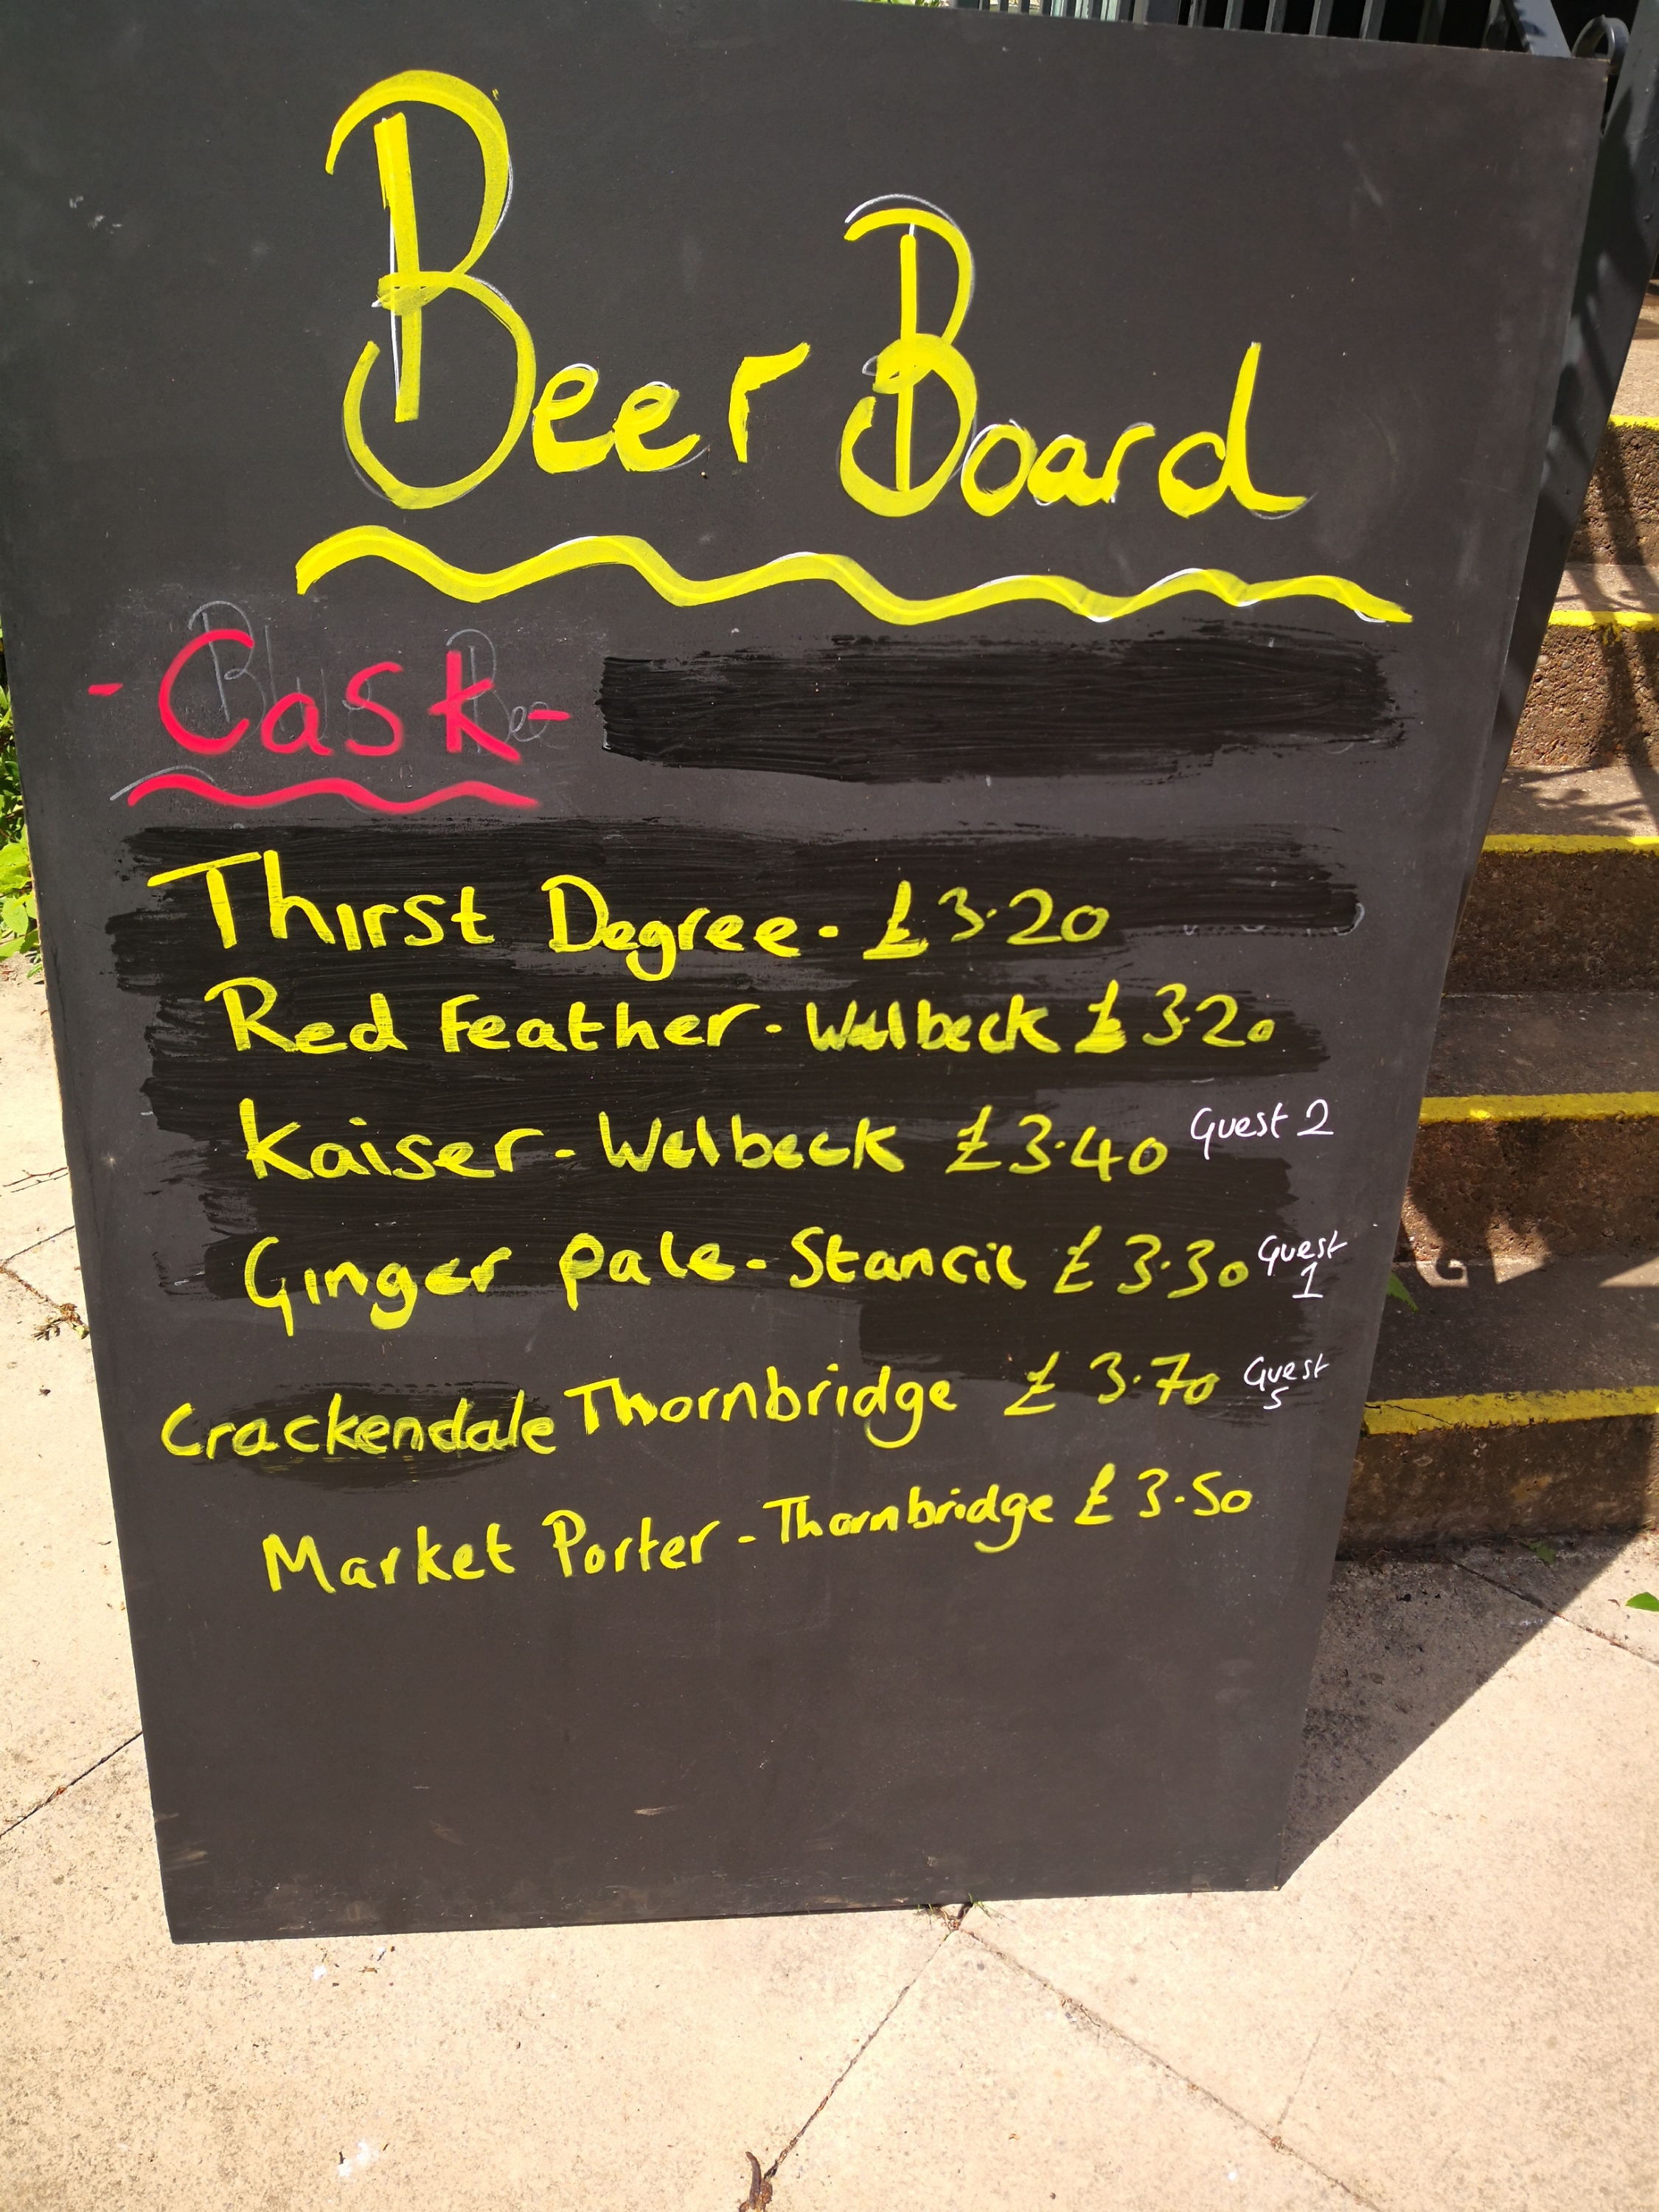 Beer Board
- Cask -
Blue Bee
Thirst Degree - £3.20
Red Feather - Welbeck £3.20
Kaiser - Welbeck £3.40 Guest 2
Ginger Pale - Stancil £3.30 Guest 1
Crackendale Thornbridge £3.70 Guest 5
Market Porter - Thornbridge £3.50